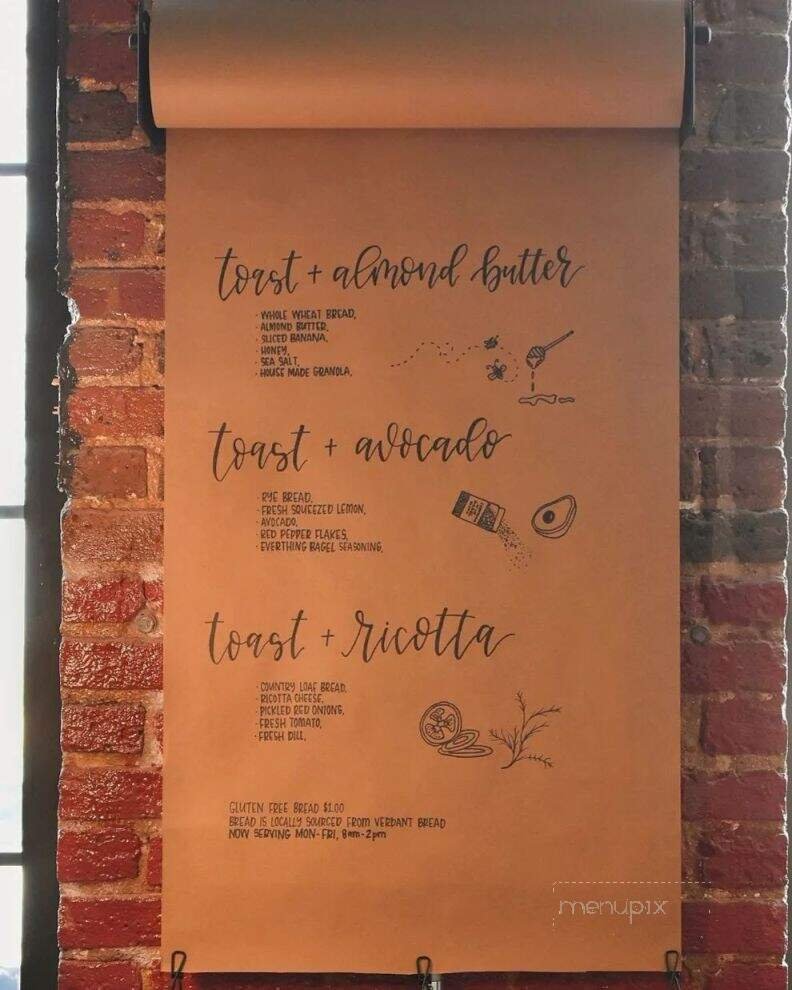 toast + almond butter
· WHOLE WHEAT BREAD,
· ALMOND BUTTER,
· SLICED BANANA,
· HONEY,
· SEA SALT,
· HOUSE MADE GRANOLA,
toast + avocado
· RYE BREAD,
· FRESH SQUEEZED LEMON,
· AVOCADO,
· RED PEPPER FLAKES,
· EVERTHING BAGEL SEASONING,
toast + ricotta
· COUNTRY LOAF BREAD,
· RICOTTA CHEESE,
· PICKLED RED ONIONS,
· FRESH TOMATO,
· FRESH DILL,
GLUTEN FREE BREAD $1.00
BREAD IS LOCALLY SOURCED FROM VERDANT BREAD
NOW SERVING MON-FRI, 8am-2pm
menupix